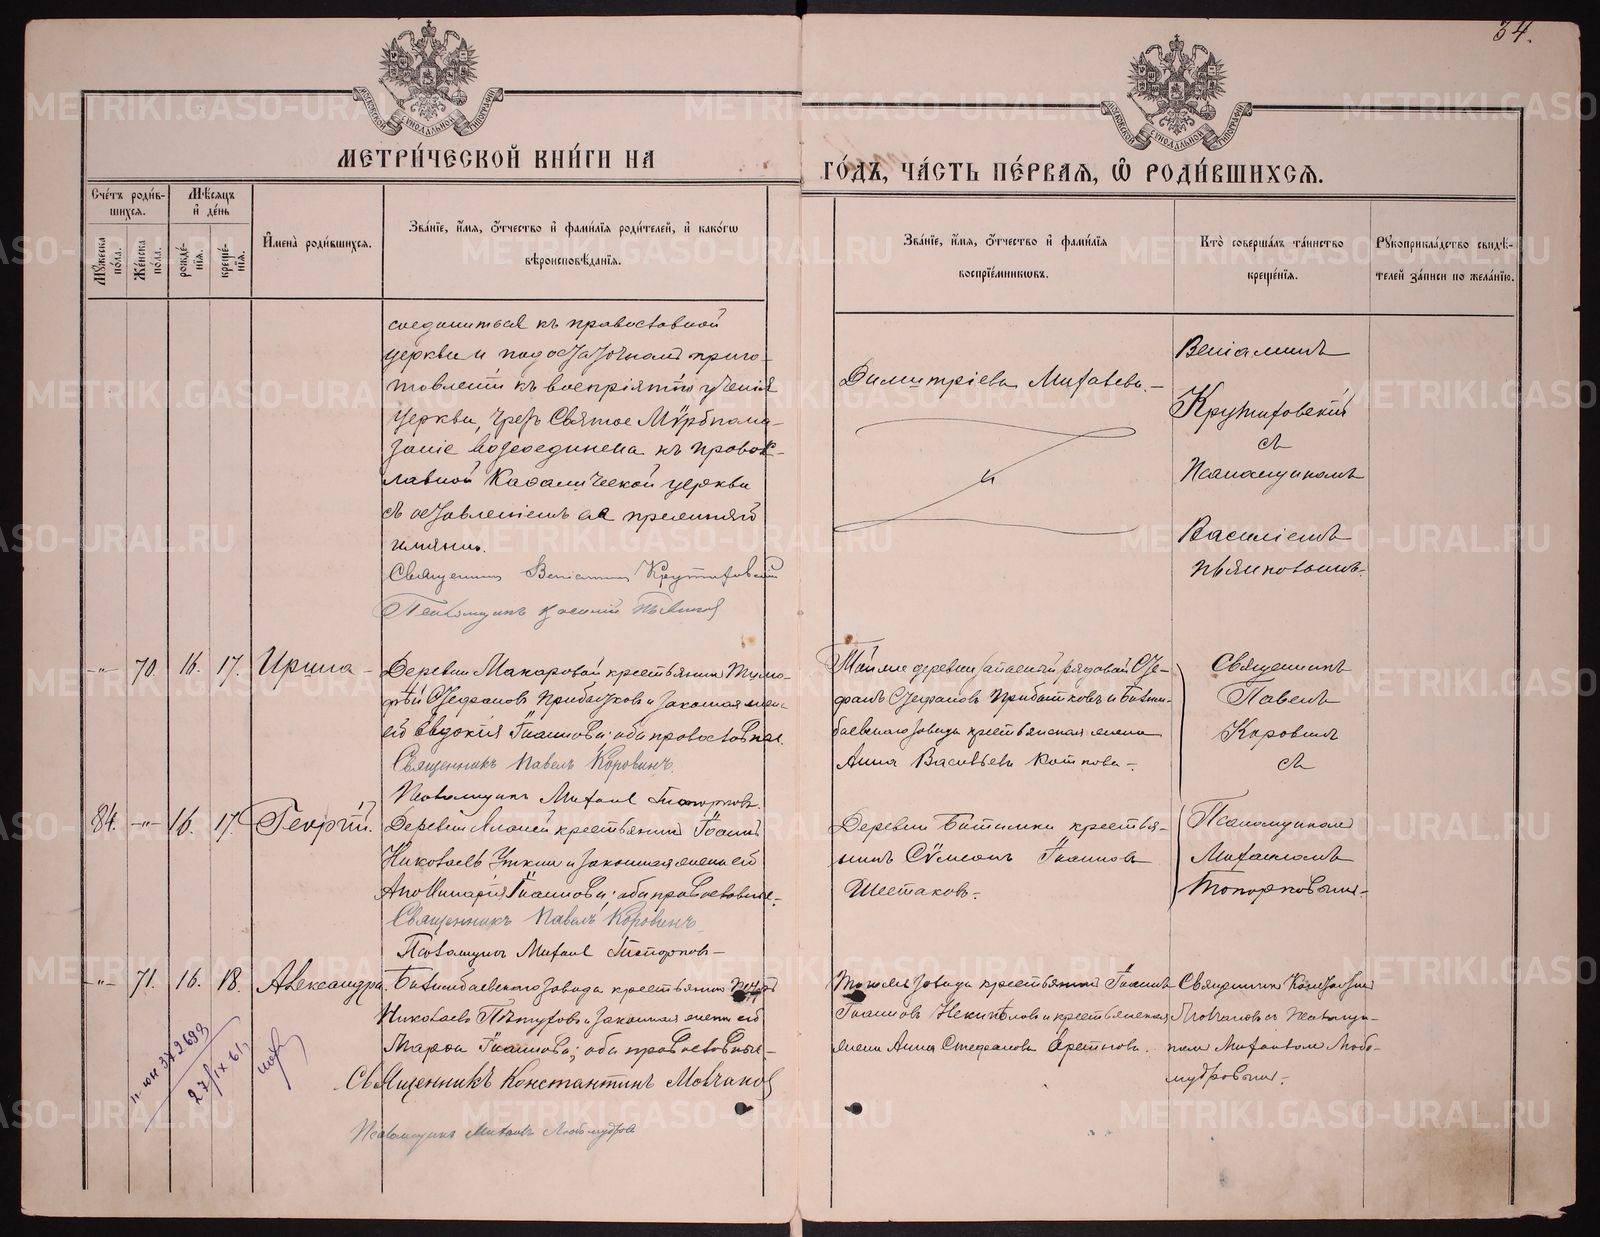 34.
МЕТРИ́ЧЕСКОЙ КНИ́ГИ НА
ГО́ДЪ, ЧА́СТЬ ПЕ́РВАЯ, Ѿ РОДИ́ВШИХСЯ.
Сче́тъ роди́в-
шихся.
Мѣсяцъ
и де́нь
Мꙋжеска по́ла.
Же́нска по́ла.
рожде́-
нїя.
креще́-
нїя.
И҆мена̀ роди́вшихся.
Зва́нїе, и҆́мя, ѻ҆́тчество и҆ фами́лїя роди́телей, и҆ како́гѡ
вѣроисповѣ́данїя.
Зва́нїе, и҆́мя, ѻ҆́тчество и҆ фами́лїя
воспрїе́мникѡвъ.
Кто̀ соверша́лъ та́инство
креще́нїя.
Рꙋкоприкла́дство свидѣ́-
телей за́писи по жела́нїю.
соединиться къ православной
церкви и по достаточномъ приго-
товленіи къ воспріятію ученія
Церкви, чрезъ Святое Мѵропома-
заніе возсоединена къ право-
славной Каѳолической церкви
съ оставленіемъ ея прежняго
имени.
Священникъ Веніаминъ Крутиховскій
Псаломщикъ Василій
Димитріева Михалева.-
Веніаминъ
Крутиховскій
съ
Псаломщикомъ
Василіемъ
-"- 70. 16. 17. Ирина -
Деревни Макаровой крестьянинъ Тимо-
ѳей Стефановъ Прибытковъ и законная жена
его Евдокія Іоаннова; оба православные.
Священникъ Павелъ Коровинъ.
Псаломщикъ Михаилъ Топорковъ.
Той же деревни запасный рядовой Сте-
фанъ Стефановъ Прибытковъ и Билим-
баевскаго завода крестьянская жена
Анна Васильева Коткова-.
Священникъ
Павелъ
Коровинъ
съ
84. -"- 16. 17. Георгій.
Деревни крестьянинъ Іоаннъ
Николаевъ Уткин и законная жена его
Аполлинарія Іоаннова; оба православные.
Священникъ Павелъ Коровинъ.
Псаломщикъ Михаилъ Топорковъ-
Деревни Битимки крестья-
нинъ Сѵмеонъ Іоанновъ
Шестаковъ-.
Псаломщикомъ
Михаиломъ
Топорковымъ-.
-"- 71. 16. 18. Александра.
Билимбаевскаго завода крестьянинъ Петръ
Николаевъ Пѣтуховъ и законная жена его
Марѳа Іоаннова; оба православные-
Священникъ Константинъ Молчановъ
Псаломщикъ Михаилъ Любомудровъ
Тогоже завода крестьянинъ Іоаннъ
Іоанновъ и крестьянская
жена Анна Стефанова
Священникъ Константинъ
Молчановъ съ Псаломщи-
комъ Михаиломъ Любо-
мудровымъ-.
27/IX 61.
METRIKI.GASO-URAL.RU